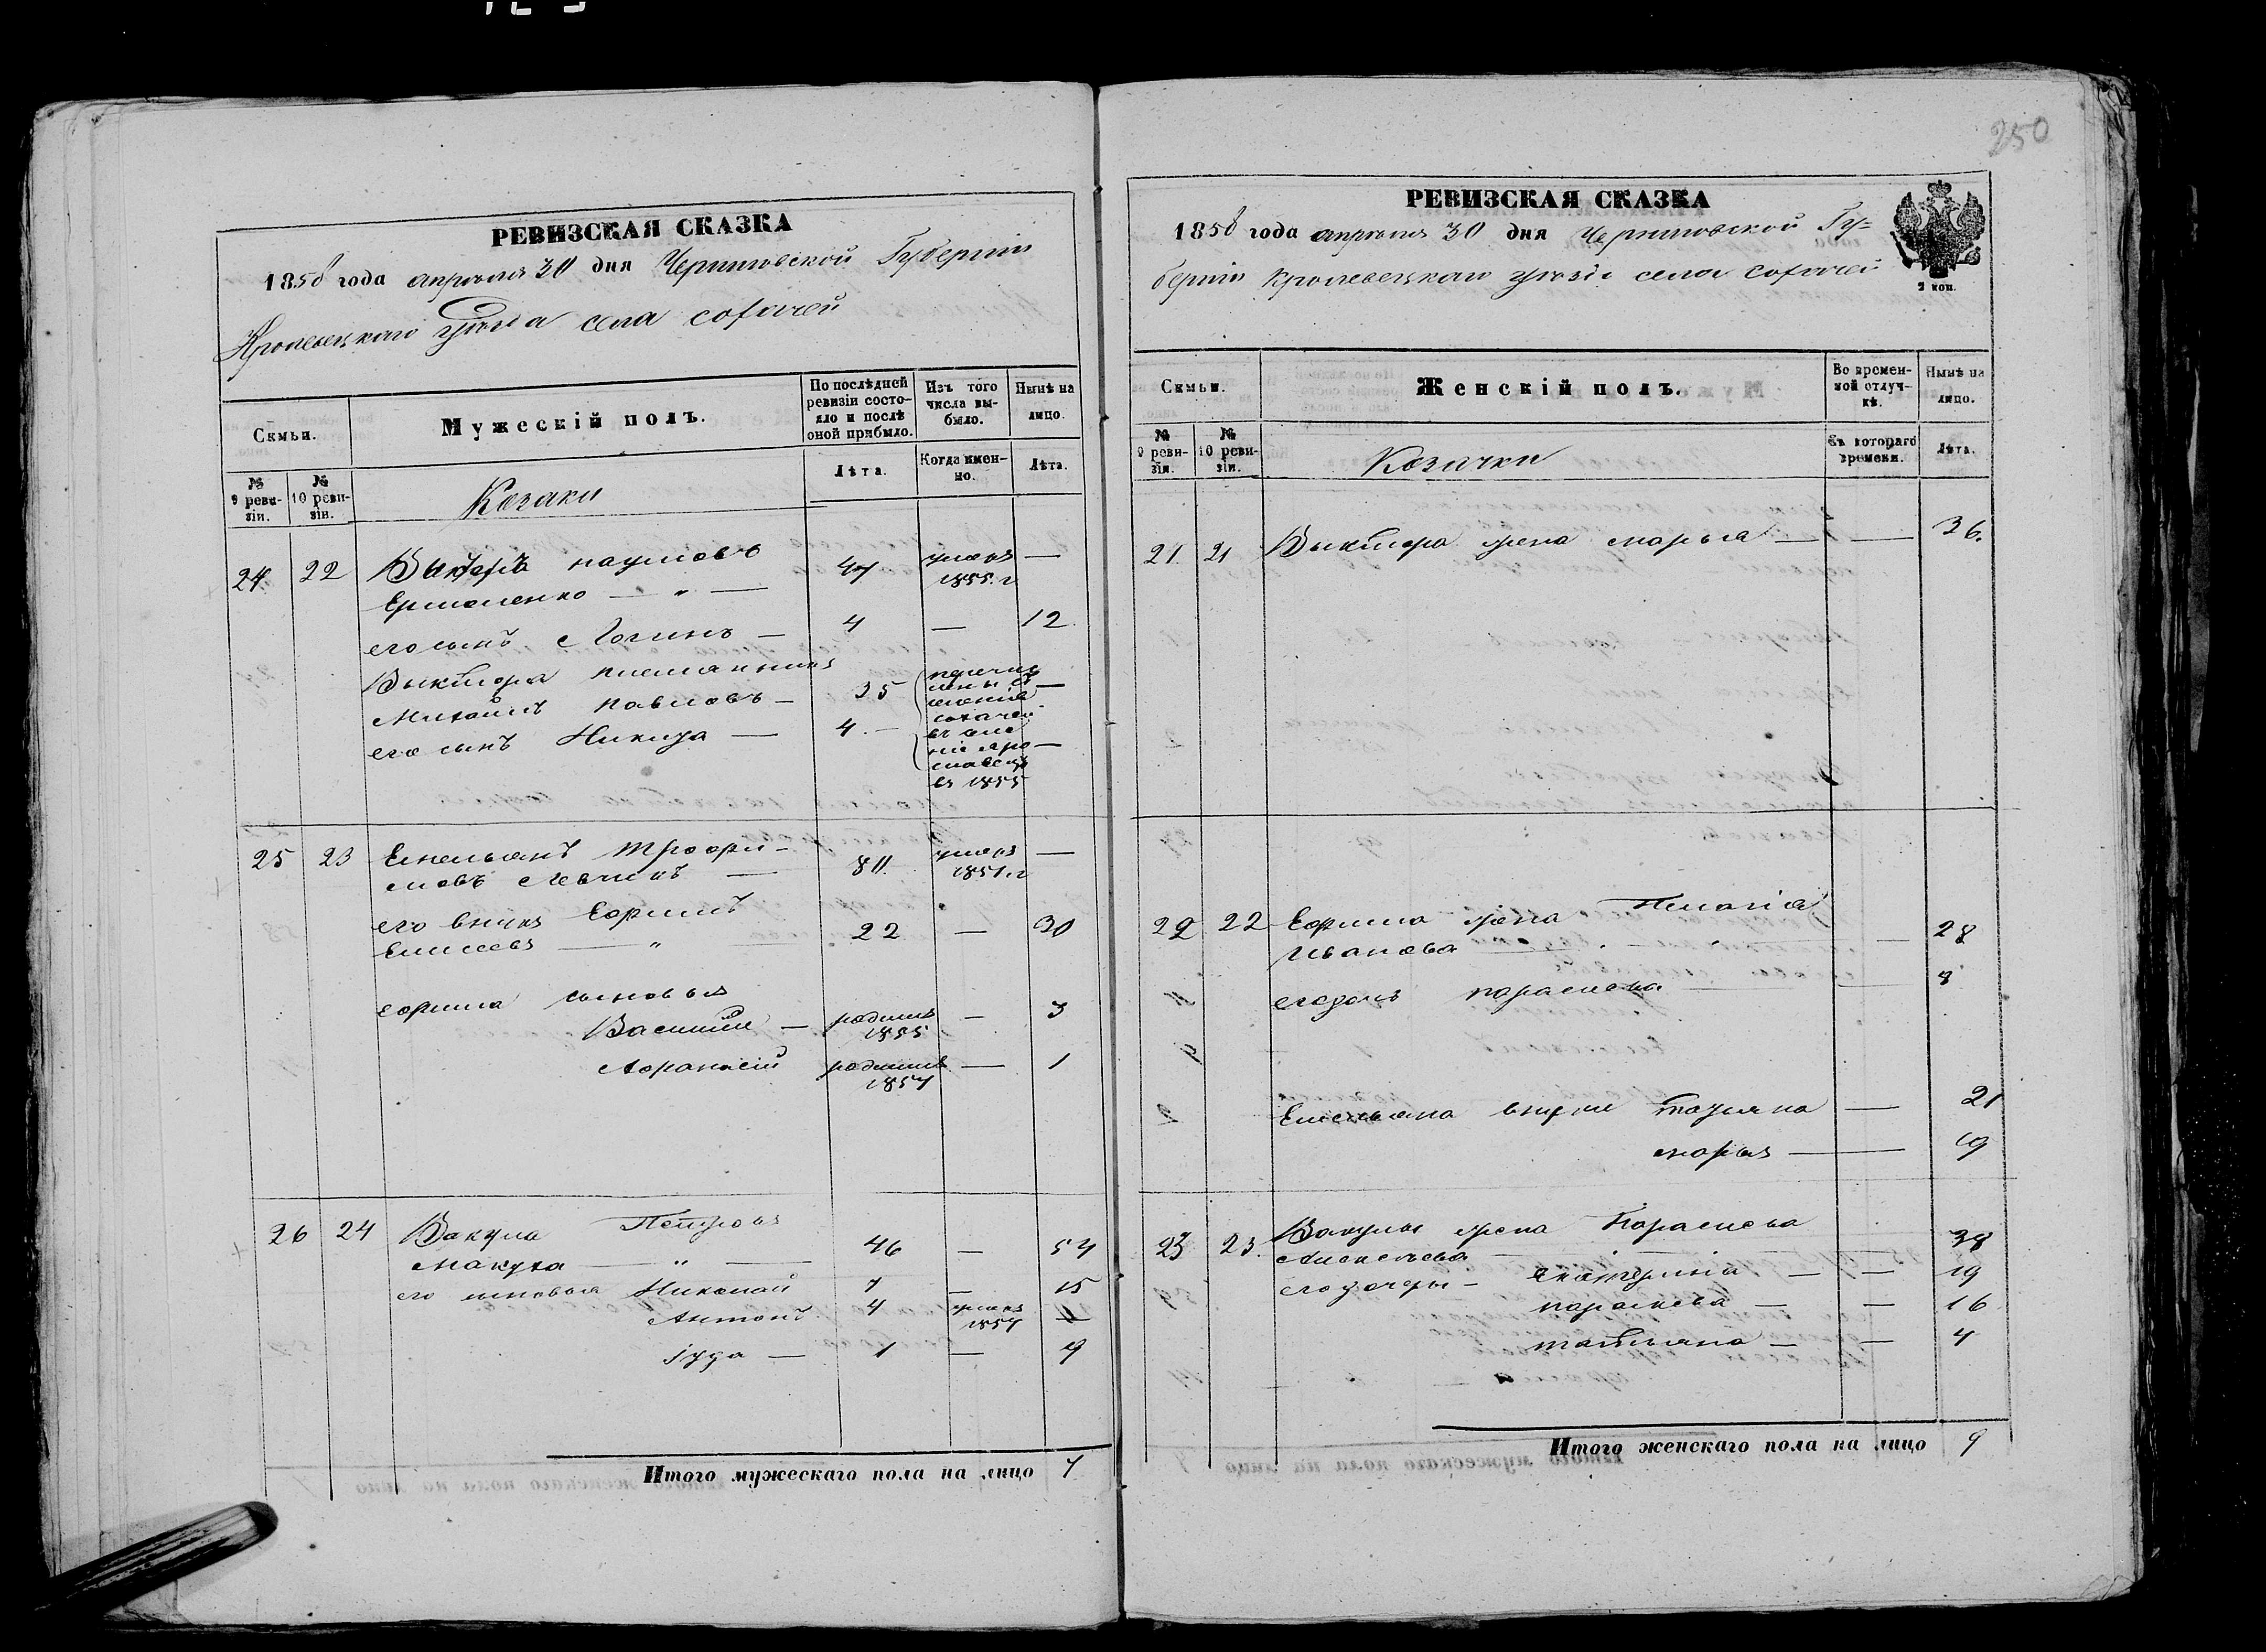 250
РЕВИЗСКАЯ СКАЗКА
1858 года апреля 30 дня Черниговской Губерніи
Кролевецкаго уезда села Сохачей
Семьи.
Мужескій полъ.
По послѣдней ревизіи состояло и послѣ оной прибыло.
Изъ того числа выбыло.
Нынѣ на лицо.
№ 9 ревизіи.
№ 10 ревизіи.
Козаки
Лѣта.
Когда именно.
Лѣта.
24 22 Викторъ Наумовъ
Ермоленко — " — 47 умеръ 1855. г —
его сынъ Логинъ — 4 — 12
Виктора племянникъ
Михайлъ Павловъ — 35
его сынъ Никита — 4. —
въ 1855
25 23 Емельянъ Трофи-
мовъ Левчикъ — 80. умеръ 1851. г —
его внукъ Ефимъ
Елисеевъ — " 22 — 30
Ефима сыновья
Василий — родился 1855 — 3
Афанасій родился 1857 — 1
26 24 Вакула Петровъ
Макуха — " — 46 — 54
его сыновья Николай 7 — 15
Антонъ 4 умеръ 1857 —
Iуда — 1 — 9
Итого мужескаго пола на лицо 7
РЕВИЗСКАЯ СКАЗКА
1858 года апреля 30 дня Черниговской Гу-
берніи Кролевецкаго уезда села Сохачей
2 коп.
Семьи.
Женскій полъ.
Во временной отлучкѣ.
Нынѣ на лицо.
№ 9 ревизіи.
№ 10 ревизіи.
Козачки
Съ котораго времени.
Лѣта.
21. 21 Виктора жена Марья — — 36.
22 22 Ефима жена Пелагія
Иванова — 28
его дочь Параскева — 8
Емельяна внуки Татьяна — 21
Марья — 19
23 23. Вакулы жена Параскева
Алексеева — — 38
его дочери — Екатерина — — 19
Параскева — — 16
Татьяна — — 4
Итого женскаго пола на лицо 9